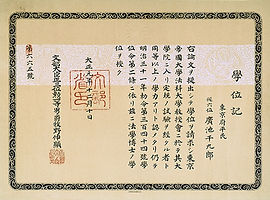 學位記
東京府平民
廣池千九郎
右論文ヲ提出シテ學位ヲ請求シ東京
帝國大學法科大學教授會ニ於テ其大
學院ニ入リ定規ノ試驗ヲ經タル者ト
同等以上ノ學力アリト認メタリ仍テ
明治三十一年勅令第三百四十四號學
位令第二條ニ依リ茲ニ法學博士ノ學
位ヲ授ク
大正元年十二月十日
文部大臣